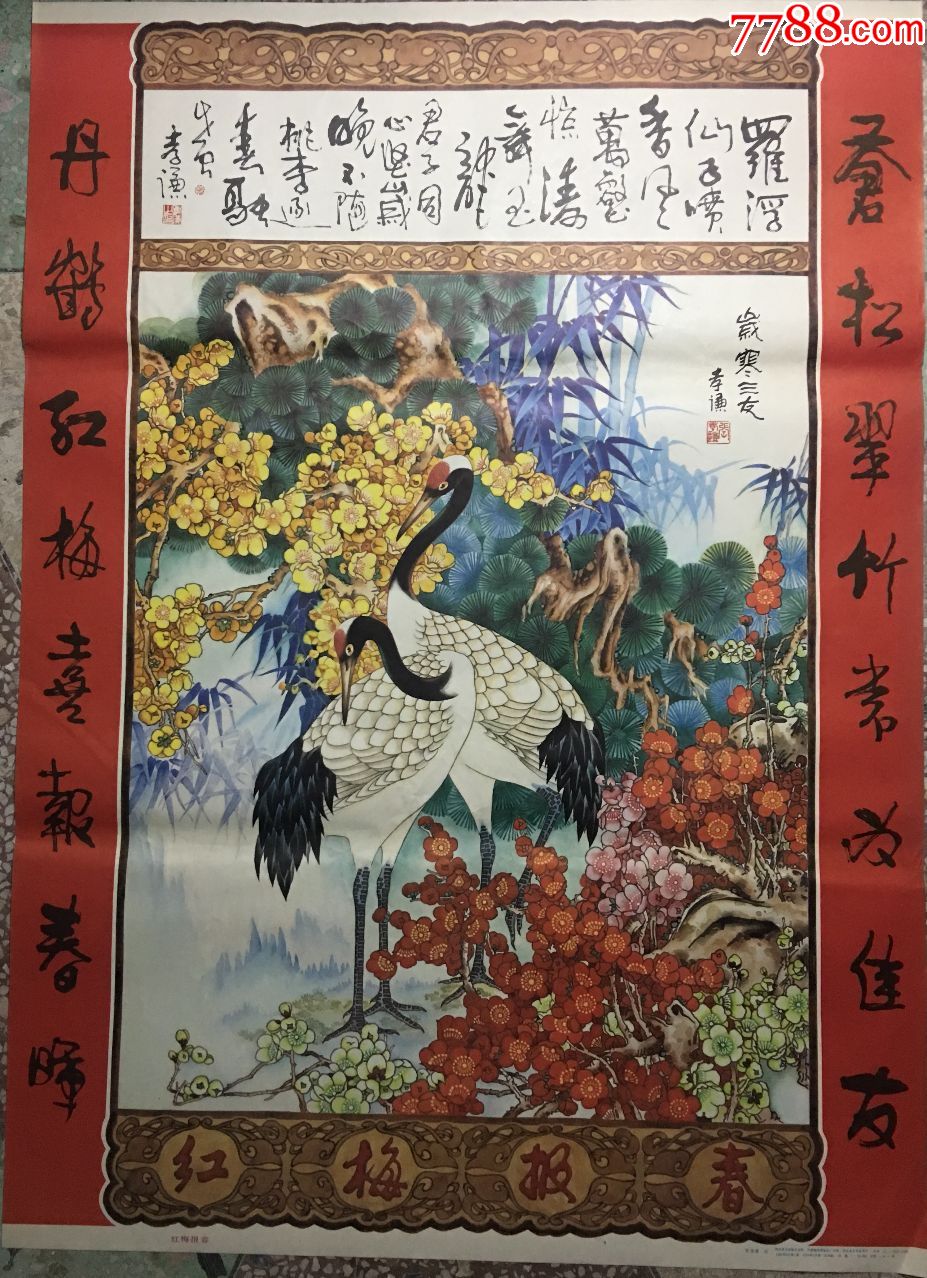 7788.com
蒼松翠竹常为佳友
丹鶴红梅喜報春暉
羅浮
仙子噴
香風
萬壑
惊濤
舞玉
龍
君子同
心堅歲
晚不隨
桃李逐
春融
孝謙
歲寒三友
孝謙
红梅报春
红梅报春